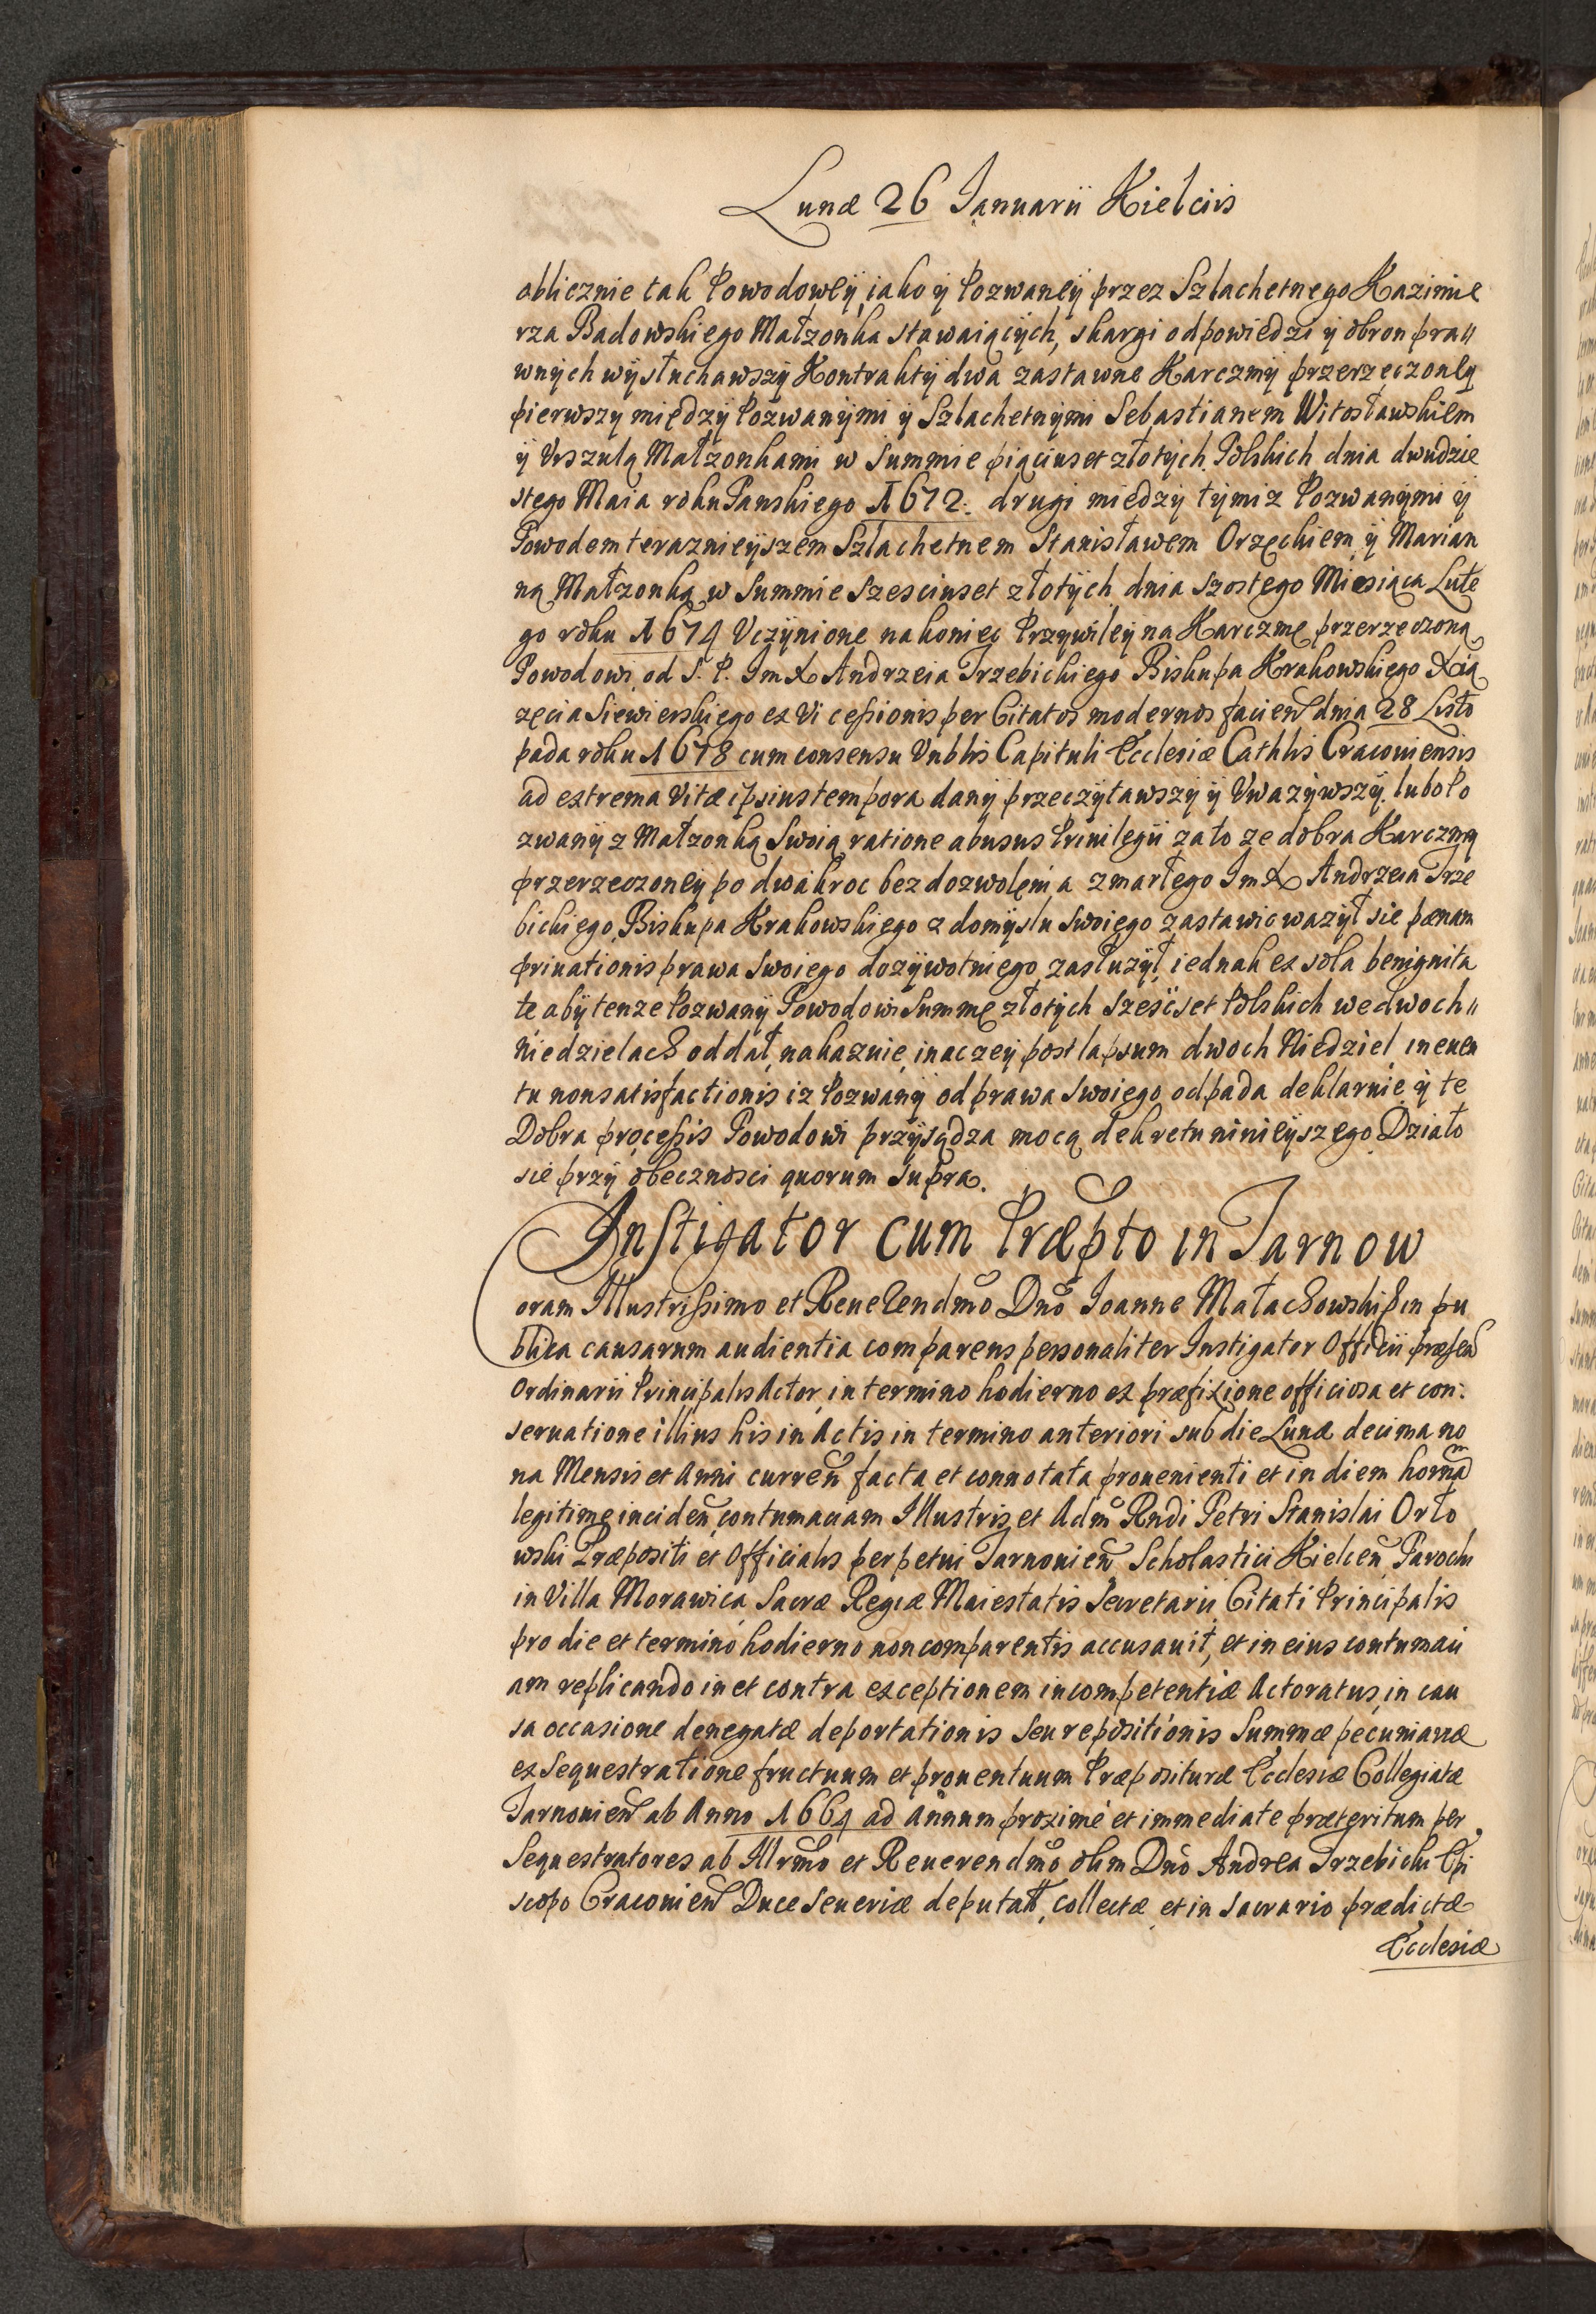 Lunæ 26 Ianuarii Kielciis
oblicznie tak Powodowey, iako ÿ Pozwaneÿ przez Szlachetnego Kazimie
rza Badowskiego Małzonka stawaiącÿch, skargi odpowiedzi ÿ obron pra〃
wnÿch wÿsłuchawszÿ Kontraktÿ dwa zastawne Karczmÿ przerzeczoney
pierwszy międzÿ Pozwanÿmi ÿ Szlachetnÿmi Sebastianem Witosławskiem
ÿ Vrszulą Małzonkami w Summie piąciuset złotÿch Polskich dnia dwudzie
stego Maia roku Panskiego 1672. drugi międzÿ tÿmiz Pozwanÿmi ÿ
Powodem teraznieÿszem Szlachetnem Stanisławem Orzechiem ÿ Marian
ną Małzonką w Summie Szesciuset złotÿch dnia Szostego Miesiąca Lute
go roku 1674 Vczÿnione nakoniec Przÿwileÿ na Karczmę przerzeczoną
Powodowi od S. P. Im X Andrzeia Trzebickiego Biskupa Krakowskiego Xią
zęcia Siewierskiego ex Vi cessionis per Citatos modernos facien dnia 28 Listo
pada roku 1678 cum consensu Vnblis Capituli Ecclesiæ Cathlis Cracouiensis
ad extrema Vitæ ipsius tempora danÿ przeczÿtawszÿ ÿ Vwazÿwszÿ. lubo Po
zwanÿ z Małzonką Swoią ratione abusus Priuilegii zato ze dobra Karczmę
przerzeczoneÿ po dwakroc bez dozwolenia zmarłego Im X Andrzeia Trze
bickiego Biskupa Krakowskiego z domÿsłu swoiego zastawic wazÿł sie pænam
priuationis prawa Swoiego dozÿwotniego zasłuzÿł, iednak ex sola benignita
te abÿ tenze Pozwanÿ Powodowi Summę złotÿch Szesćset Polskich we dwoch〃
niedzielach oddał, nakazuie, inaczeÿ post lapsum dwoch Niedziel in euen
tu non satisfactionis iz Pozwanÿ od prawa swoiego odpada deklaruie ÿ te
Dobra processis Powodowi przÿsądza mocą dekretu ninieÿszego Działo
sie przÿ obecznosci quorum supra.
Instigator cum Præpto in Tarnow
oram Illustrissimo et Reuerendmo Dno Ioanne Małachowski in pu
blica causarum audientia comparens personaliter Instigator Officii præsen
Ordinarii Principalis Actor, in termino hodierno ex præfixione officiosa et con:
seruatione illius his in Actis in termino anteriori sub die Lunæ decima no
na Mensis et Anni curren facta et connotata prouenienti et in diem hornam
legitime inciden, contumaciam Illustris et Adm Rndi Petri Stanislai Orło
wski Præpositi et Officialis perpetui Tarnouien Scholastici Kielcen Parochi
in Villa Morawica Sacræ Regiæ Maiestatis Secretarii Citati Principalis
pro die et termino hodierno non comparentis accusauit, et in eius contumaci
am replicando in et contra exceptionem incompetentiæ Actoratus, in cau
sa occasione denegatæ deportationis seu repositionis Summæ pecuniariæ
ex Sequestratione fructuum et prouentuum Præposituræ Ecclesiæ Collegiatæ
Tarnouien ab Anno 1664 ad Annum proximè et immediate præteritum per
Sequestratores ab Illrmo et Reuerendmo olim Dno Andrea Trzebicki Epi
scopo Cracouien Duce Seueriæ deputat, collectæ et in sacrario prædictæ
Ecclesiæ